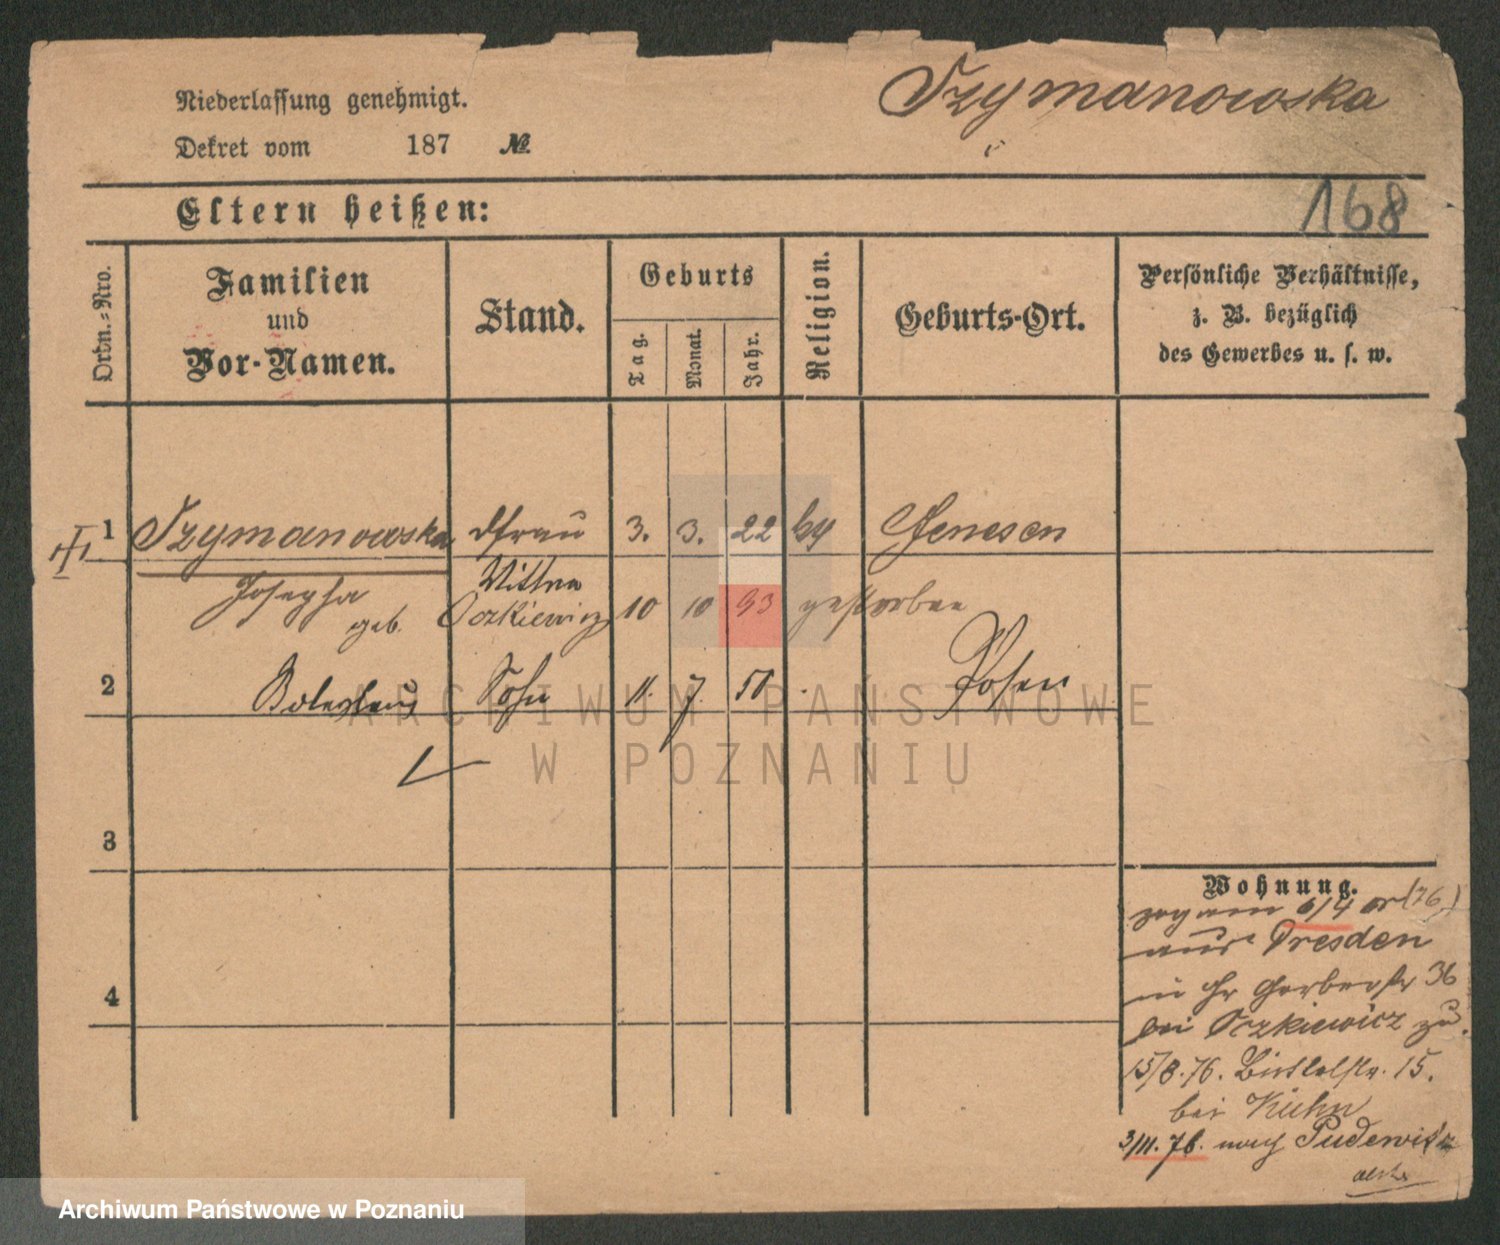 Szymanowska
Niederlassung genehmigt.
Dekret vom 187 №
168
Eltern heißen:
Ordn.-Nro.
Familien
und
Vor-Namen.
Stand.
Geburts
Tag.
Monat.
Jahr.
Religion.
Geburts-Ort.
Persönliche Verhältnisse,
z. B. bezüglich
des Gewerbes u. s. w.
1 Szymanowska 3. 3. 22 Gnesen
Wittwe
Josepha
geb. Oczkiewicz 10 10 93 gestorben
2 Boleslaus Sohn 11. 7. 51 Posen
3
4
Wohnung.
zog am 6/4 cr (76)
aus Dresden
Gerberstr 36
bei Oczkiewicz zu.
15/8.76. 15.
bei Kuhn
3/11.76. nach Pudewitz
ARCHIWUM PAŃSTWOWE
W POZNANIU
Archiwum Państwowe w Poznaniu